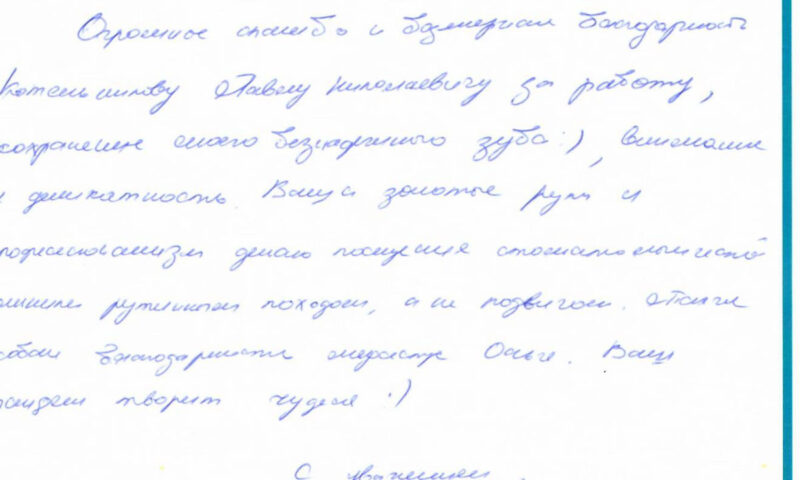 Огромное спасибо и безмерная благодарность
Котельникову Павлу Николаевичу за работу,
сохранение моего безнадежного зуба :), внимание
и деликатность. Ваши золотые руки и
профессионализм делают посещения стоматологической
рутинным походом, а не подвигом. Также
особая благодарность медсестре Ольге. Ваш
тандем творит чудеса :)
С уважением